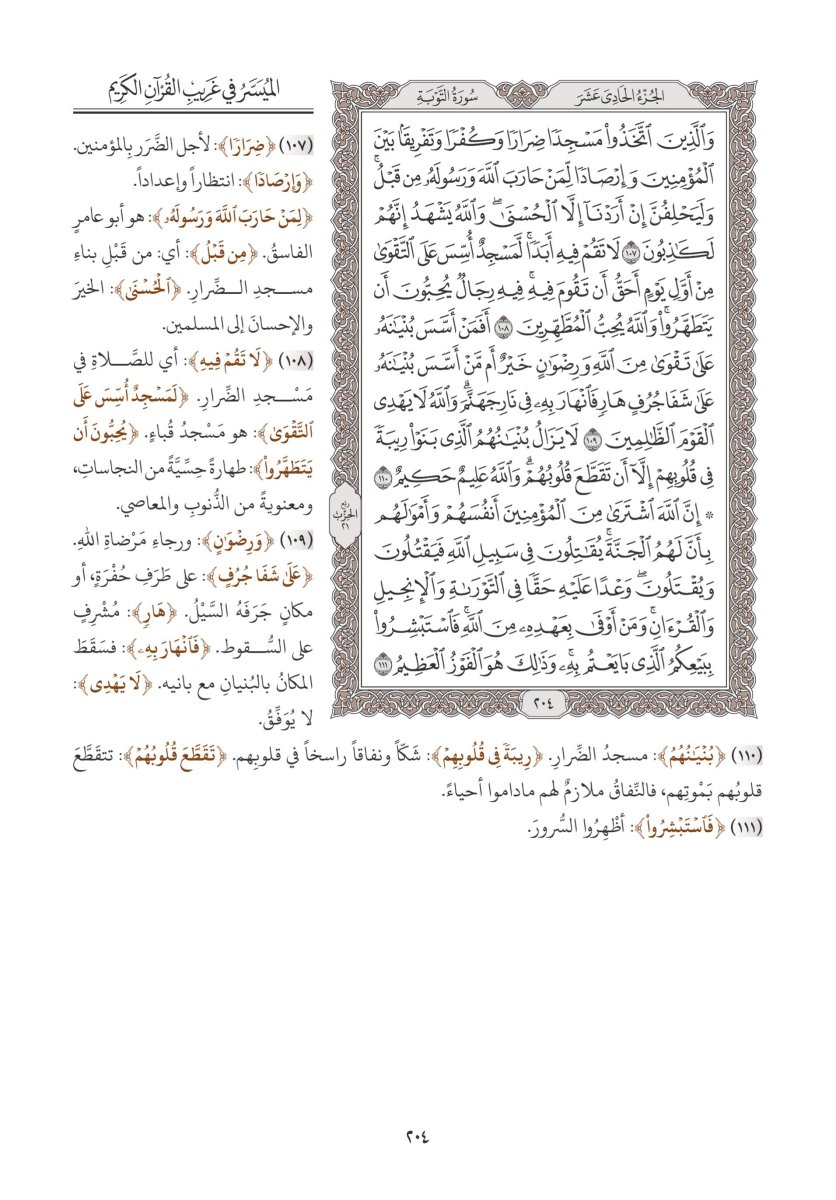 الميُسَّرُ في غَرِيبِ القُرْآنِ الكَرِيم
سُورَةُ التَّوْبَةِ
الجُزْءُ الحَادِىَ عَشَرَ
وَٱلَّذِينَ ٱتَّخَذُوا۟ مَسْجِدًا ضِرَارًا وَكُفْرًا وَتَفْرِيقًۢا بَيْنَ
ٱلْمُؤْمِنِينَ وَإِرْصَادًا لِّمَنْ حَارَبَ ٱللَّهَ وَرَسُولَهُۥ مِن قَبْلُ ۚ
وَلَيَحْلِفُنَّ إِنْ أَرَدْنَآ إِلَّا ٱلْحُسْنَىٰ ۖ وَٱللَّهُ يَشْهَدُ إِنَّهُمْ
لَكَـٰذِبُونَ ١٠٧ لَا تَقُمْ فِيهِ أَبَدًا ۚ لَّمَسْجِدٌ أُسِّسَ عَلَى ٱلتَّقْوَىٰ
مِنْ أَوَّلِ يَوْمٍ أَحَقُّ أَن تَقُومَ فِيهِ ۚ فِيهِ رِجَالٌ يُحِبُّونَ أَن
يَتَطَهَّرُوا۟ ۚ وَٱللَّهُ يُحِبُّ ٱلْمُطَّهِّرِينَ ١٠٨ أَفَمَنْ أَسَّسَ بُنْيَـٰنَهُۥ
عَلَىٰ تَقْوَىٰ مِنَ ٱللَّهِ وَرِضْوَٰنٍ خَيْرٌ أَم مَّنْ أَسَّسَ بُنْيَـٰنَهُۥ
عَلَىٰ شَفَا جُرُفٍ هَارٍ فَٱنْهَارَ بِهِۦ فِى نَارِ جَهَنَّمَ ۗ وَٱللَّهُ لَا يَهْدِى
ٱلْقَوْمَ ٱلظَّـٰلِمِينَ ١٠٩ لَا يَزَالُ بُنْيَـٰنُهُمُ ٱلَّذِى بَنَوْا۟ رِيبَةً
فِى قُلُوبِهِمْ إِلَّآ أَن تَقَطَّعَ قُلُوبُهُمْ ۗ وَٱللَّهُ عَلِيمٌ حَكِيمٌ ١١٠
۞ إِنَّ ٱللَّهَ ٱشْتَرَىٰ مِنَ ٱلْمُؤْمِنِينَ أَنفُسَهُمْ وَأَمْوَٰلَهُم
بِأَنَّ لَهُمُ ٱلْجَنَّةَ ۚ يُقَـٰتِلُونَ فِى سَبِيلِ ٱللَّهِ فَيَقْتُلُونَ
وَيُقْتَلُونَ ۖ وَعْدًا عَلَيْهِ حَقًّا فِى ٱلتَّوْرَىٰةِ وَٱلْإِنجِيلِ
وَٱلْقُرْءَانِ ۚ وَمَنْ أَوْفَىٰ بِعَهْدِهِۦ مِنَ ٱللَّهِ ۚ فَٱسْتَبْشِرُوا۟
بِبَيْعِكُمُ ٱلَّذِى بَايَعْتُم بِهِۦ ۚ وَذَٰلِكَ هُوَ ٱلْفَوْزُ ٱلْعَظِيمُ ١١١
٢٠٤
ربع
الحزب
٢١
(١٠٧) ﴿ضِرَارًا﴾: لأجل الضَّرَر بِالمؤمنين.
﴿وَإِرْصَادًا﴾: انتظاراً وإعداداً.
﴿لِمَنْ حَارَبَ ٱللَّهَ وَرَسُولَهُۥ﴾: هو أبو عامرٍ
الفاسقُ. ﴿مِن قَبْلُ﴾: أي: من قَبْلِ بناءِ
مسجدِ الضِّرارِ. ﴿ٱلْحُسْنَىٰ﴾: الخيرَ
والإحسانَ إلى المسلمين.
(١٠٨) ﴿لَا تَقُمْ فِيهِ﴾: أي للصَّلاةِ في
مَسْجدِ الضِّرارِ. ﴿لَمَسْجِدٌ أُسِّسَ عَلَى
ٱلتَّقْوَىٰ﴾: هو مَسْجدُ قُباءٍ. ﴿يُحِبُّونَ أَن
يَتَطَهَّرُوا۟﴾: طهارةً حِسِّيَّةً من النجاساتِ،
ومعنويةً من الذُّنوبِ والمعاصي.
(١٠٩) ﴿وَرِضْوَٰنٍ﴾: ورجاءِ مَرْضاةِ اللهِ.
﴿عَلَىٰ شَفَا جُرُفٍ﴾: على طَرَفِ حُفْرَةٍ، أو
مكانٍ جَرَفَهُ السَّيْلُ. ﴿هَارٍ﴾: مُشْرِفٍ
على السُّقوط. ﴿فَٱنْهَارَ بِهِۦ﴾: فسَقَطَ
المكانُ بالبُنيانِ مع بانيه. ﴿لَا يَهْدِى﴾:
لا يُوَفِّقُ.
(١١٠) ﴿بُنْيَـٰنُهُمُ﴾: مسجدُ الضِّرارِ. ﴿رِيبَةً فِى قُلُوبِهِمْ﴾: شكّاً ونفاقاً راسخاً في قلوبِهم. ﴿تَقَطَّعَ قُلُوبُهُمْ﴾: تتقطَّعَ
قلوبُهم بمَوْتِهم، فالنِّفاقُ ملازمٌ لهم ماداموا أحياءً.
(١١١) ﴿فَٱسْتَبْشِرُوا۟﴾: أظْهِرُوا السُّرورَ.
٢٠٤